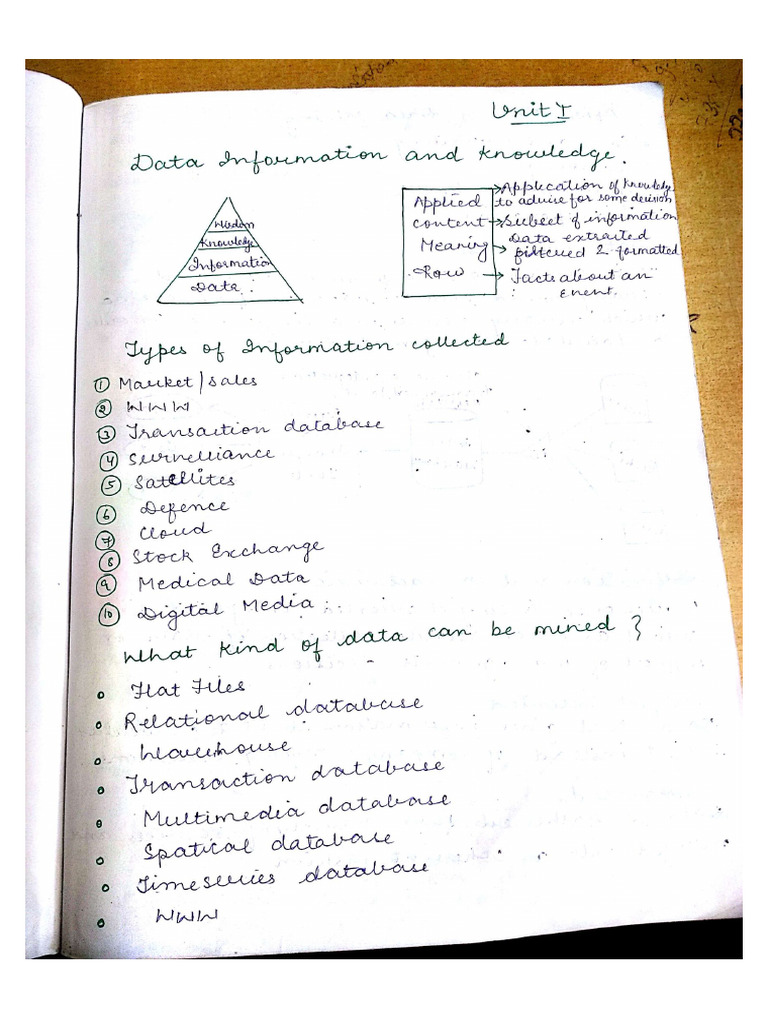 Unit I
Data Information and Knowledge.
Wisdom
Knowledge
Information
Data
Applied → Application of Knowledg to advise for some decision
content → Subset of information
Meaning → Data extracted filtered & formatted
Row → Facts about an Event.
Types of Information collected
① Market/sales
② WWW
③ Transaction database
④ Survelliance
⑤ Satellites
⑥ Defence
⑦ Cloud
⑧ Stock Exchange
⑨ Medical Data
⑩ Digital Media
What kind of data can be mined ?
Flat Files
Relational database
Warehouse
Transaction database
Multimedia database
Spatical database
Timeseries database
WWW